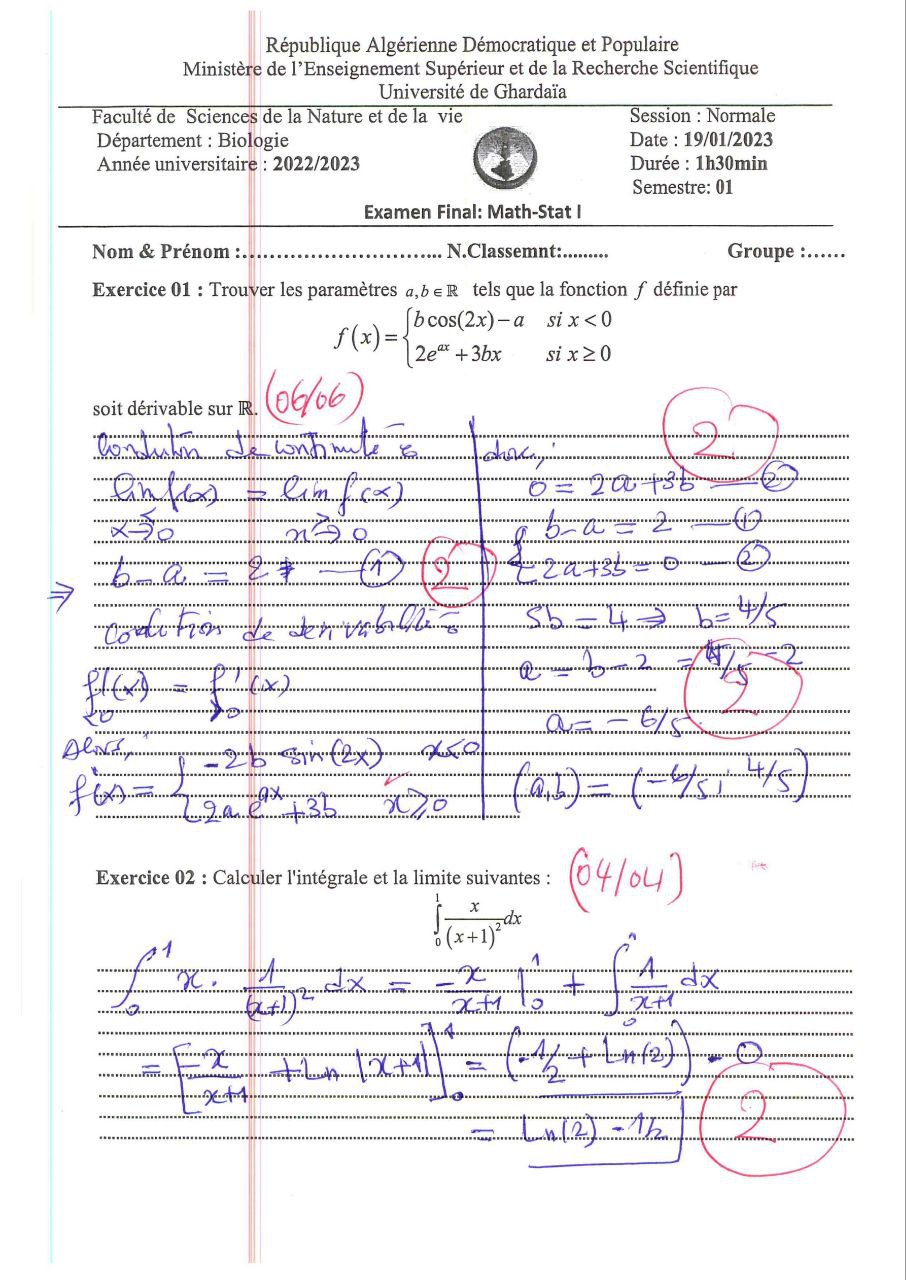 République Algérienne Démocratique et Populaire
Ministère de l'Enseignement Supérieur et de la Recherche Scientifique
Université de Ghardaïa
Faculté de Sciences de la Nature et de la vie
Département : Biologie
Année universitaire : 2022/2023
Session : Normale
Date : 19/01/2023
Durée : 1h30min
Semestre: 01
Examen Final: Math-Stat I
Nom & Prénom :............................... N.Classemnt:......... Groupe :......
Exercice 01 : Trouver les paramètres a, b ∈ ℝ tels que la fonction f définie par
f(x) = { b cos(2x) − a si x < 0
2e^{ax} + 3bx si x ≥ 0
soit dérivable sur ℝ. (06/06)
Condution de continuté :
lim f(x) = lim f(x)
x →< 0 x →> 0
⇒ b − a = 2 — ① 2
Codution de derivabilité :
f'(x) = f'(x)
<0 >0
Alors,
f'(x) = { −2b sin(2x) x<0
2a e^{ax} + 3b x ≥ 0
donc, 2
0 = 2a + 3b — ②
{ b − a = 2 — ①
2a + 3b = 0 — ②
5b = 4 ⇒ b = 4/5
a = b − 2 = 4/5 − 2
a = − 6/5. 2
(a,b) = (−6/5 ; 4/5)
Exercice 02 : Calculer l'intégrale et la limite suivantes : (04/04)
∫₀¹ x/(x+1)² dx
∫₀¹ x · 1/(x+1)² dx = −x/(x+1) |₀¹ + ∫₀¹ 1/(x+1) dx
= [−x/(x+1) + Ln |x+1|]₀¹ = (−1/2 + Ln(2)) − 0
= Ln(2) − 1/2 2